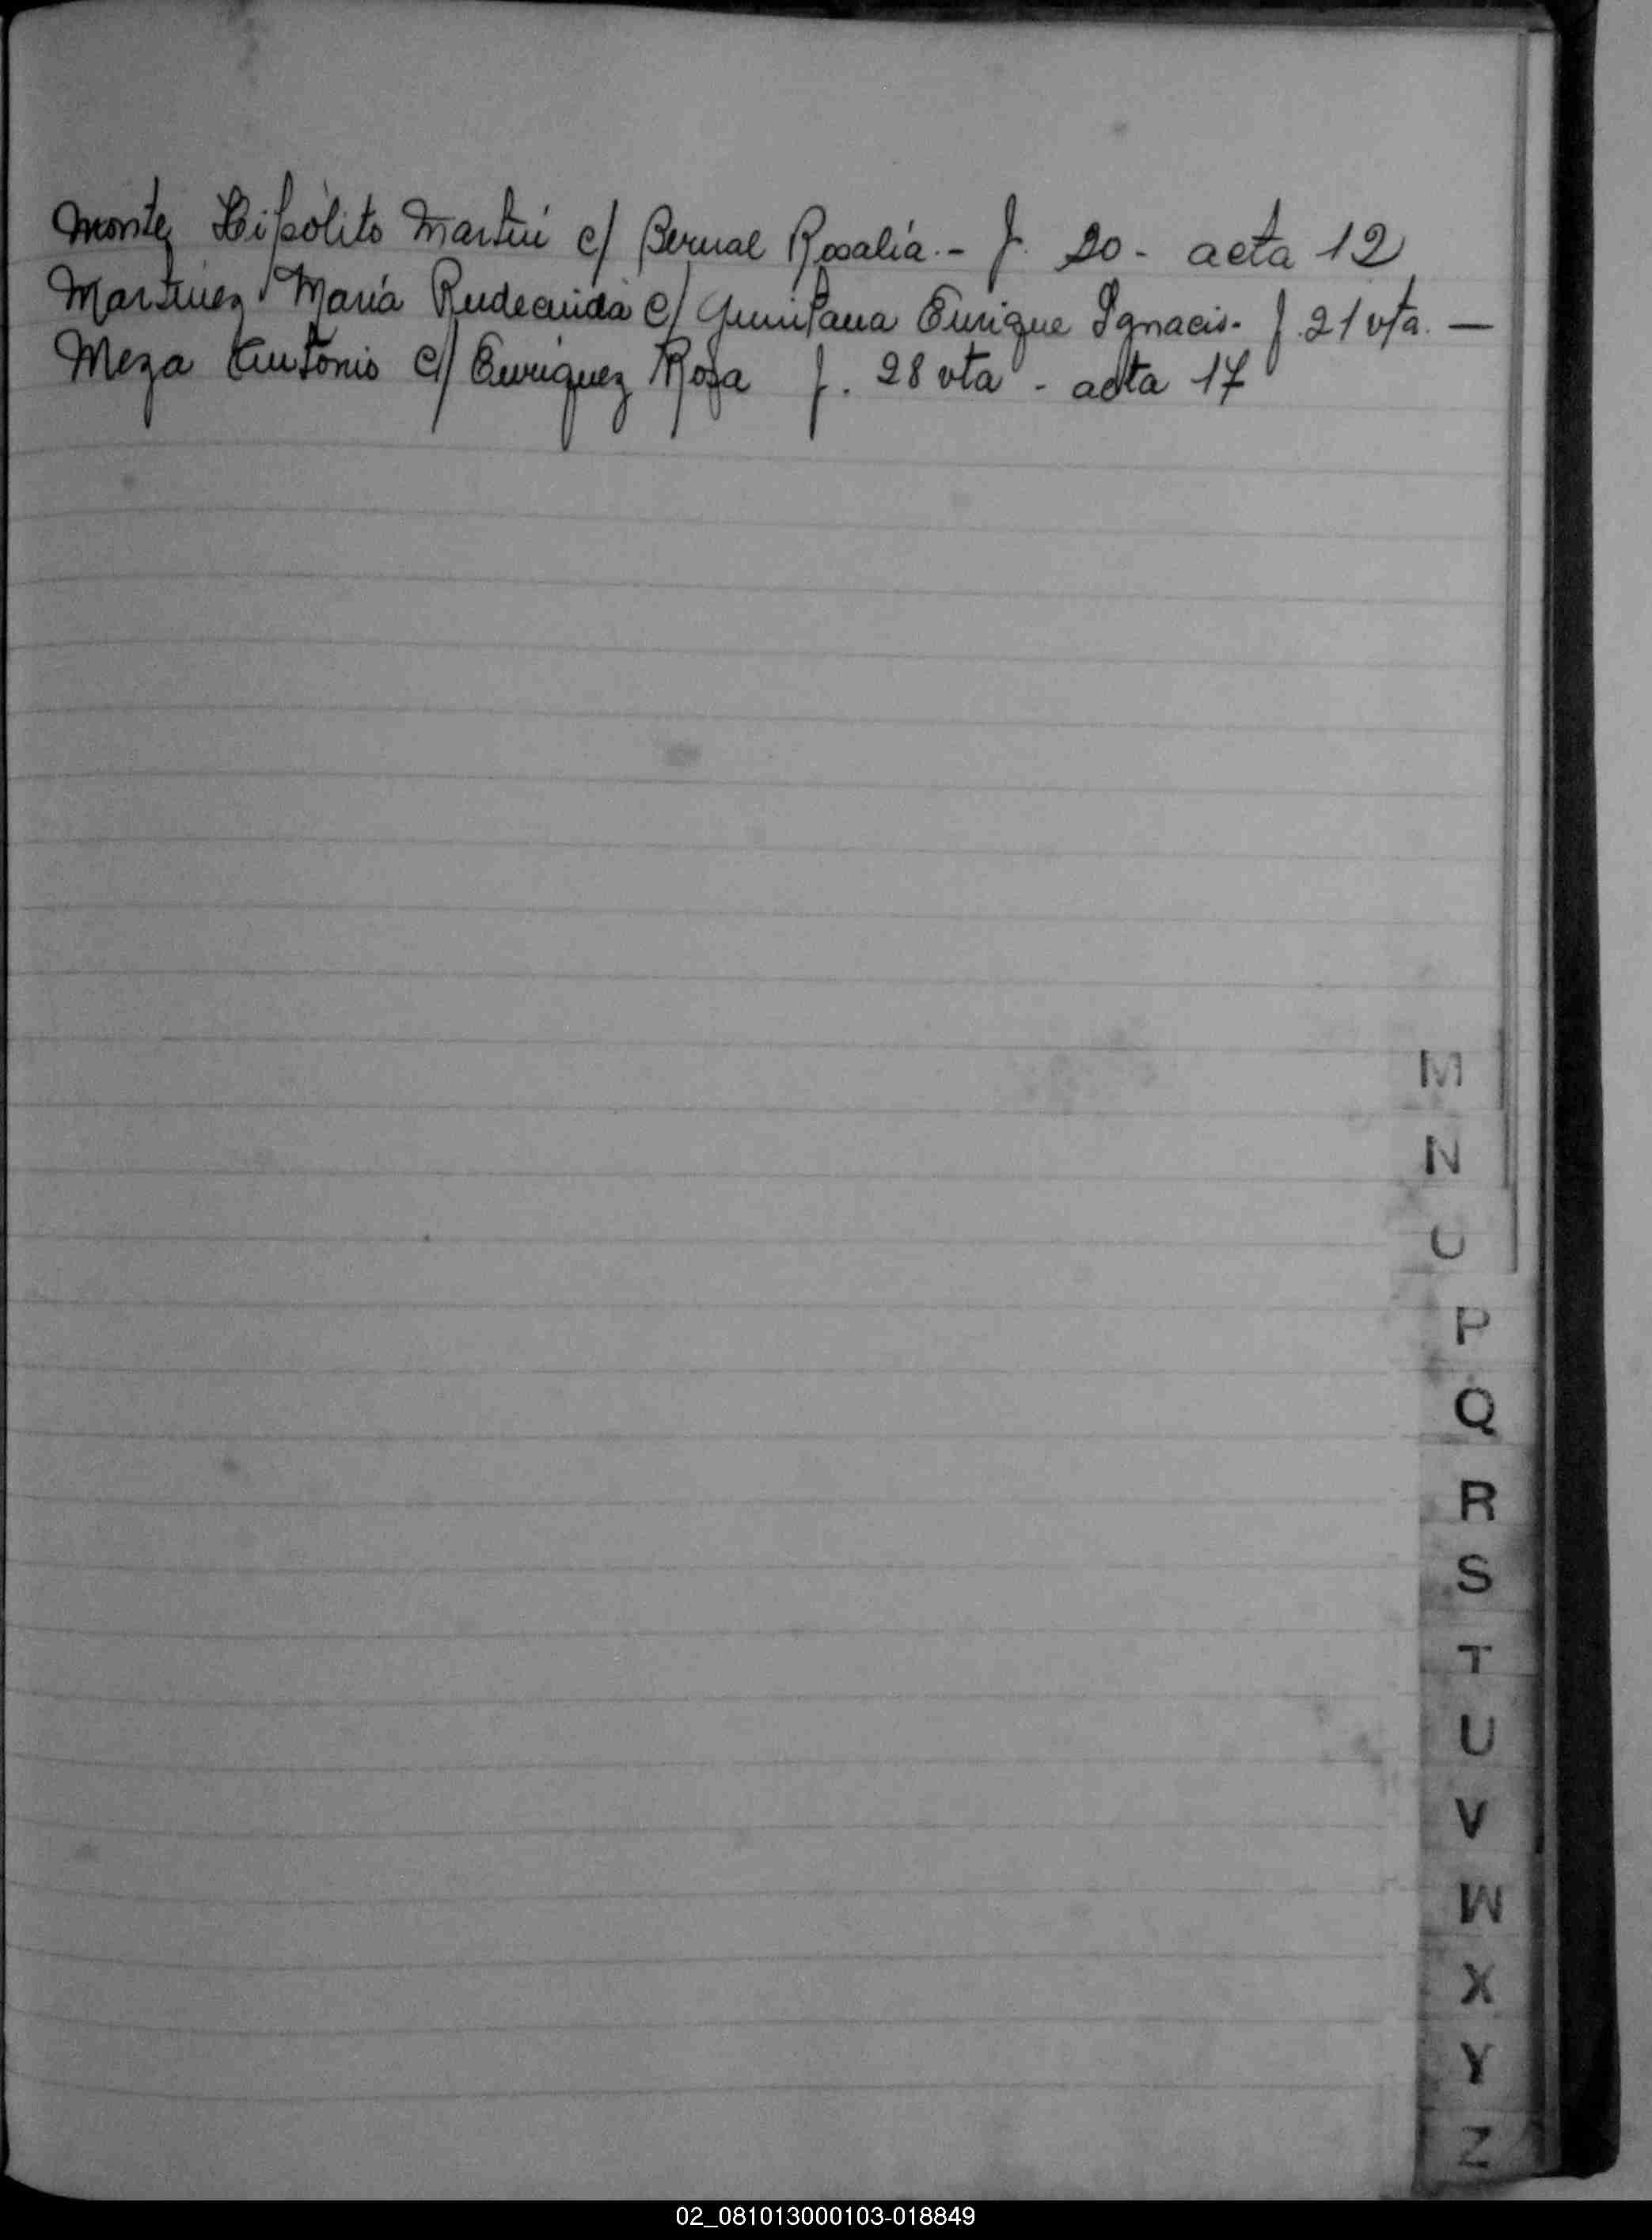 Montez Hipólito Martín c/ Bernal Rosalía.- f. 20 - acta 12
Martinez María Rudecinda c/ Quintana Enrique Ignacio- f. 21 vta. —
Meza Antonio c/ Enriquez Rosa f. 28 vta - acta 17
M
N
O
P
Q
R
S
T
U
V
W
X
Y
Z
02_081013000103-018849